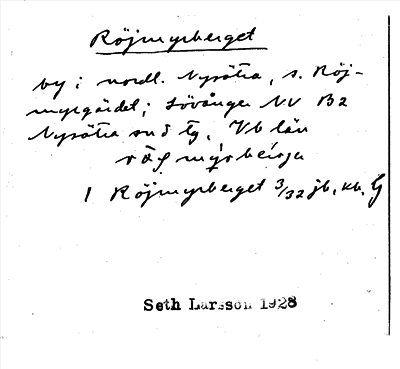 Röjmyrberget
by i nordl. Nysätra, s. Röj-
myrgärdet; Lövånger NV B2
Nysätra snd tg, Vb län
1 Röjmyrberget 3/32 jb, kb. G
Seth Larsson 1928